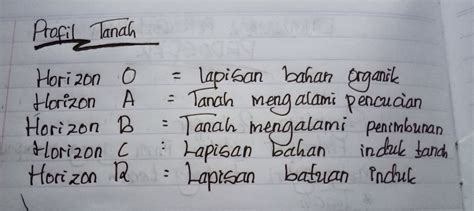 Profil Tanah
Horizon O = Lapisan bahan organik
Horizon A = Tanah mengalami pencucian
Horizon B = Tanah mengalami penimbunan
Horizon C = Lapisan bahan induk tanah
Horizon R = Lapisan batuan induk